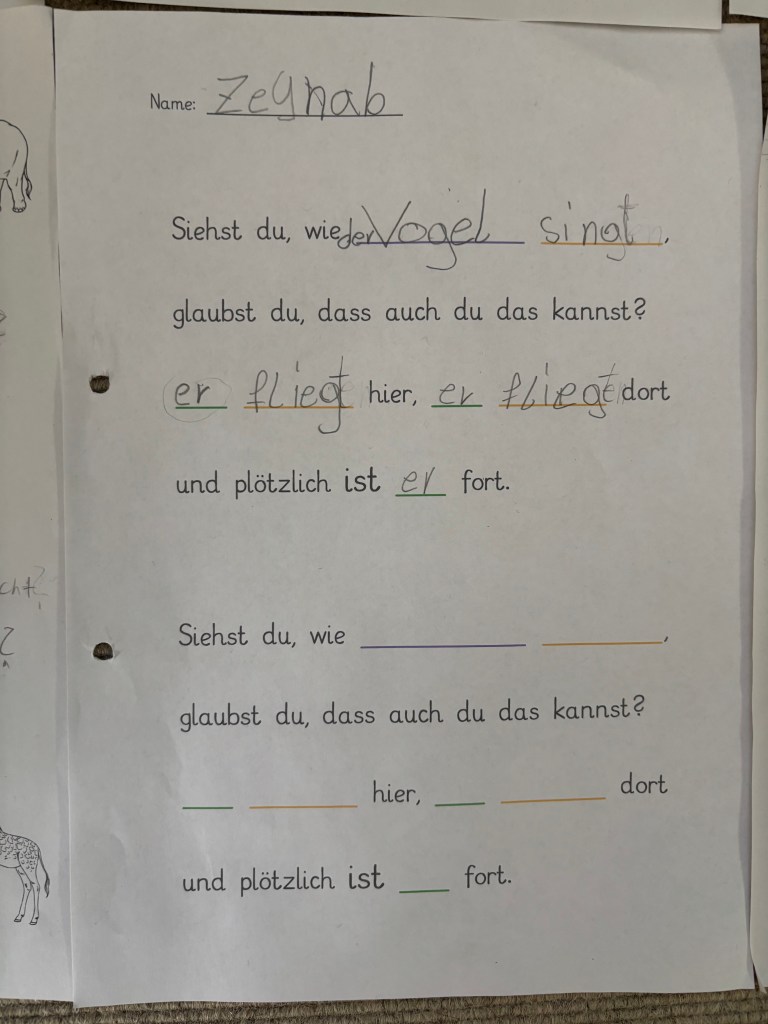 Name: Zeynab
Siehst du, wie der Vogel singt,
glaubst du, dass auch du das kannst?
er fliegt hier, er fliegt dort
und plötzlich ist er fort.
cht?
?
Siehst du, wie
,
glaubst du, dass auch du das kannst?
hier, dort
und plötzlich ist fort.